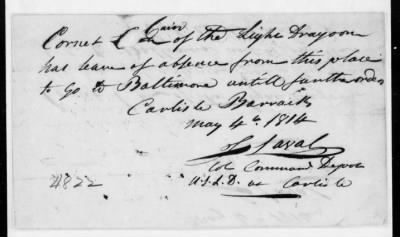 Cornet L of the Light Dragoons
has leave of absence from this place
to go to Baltimore untill further orders
Carlisle Barracks
May 4th 1814
J Laval
Col Command Depot
U.S.L.D. at Carlisle
4822